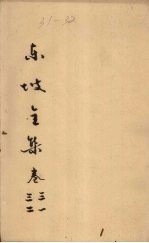 31-32
东坡全集卷三一
三二